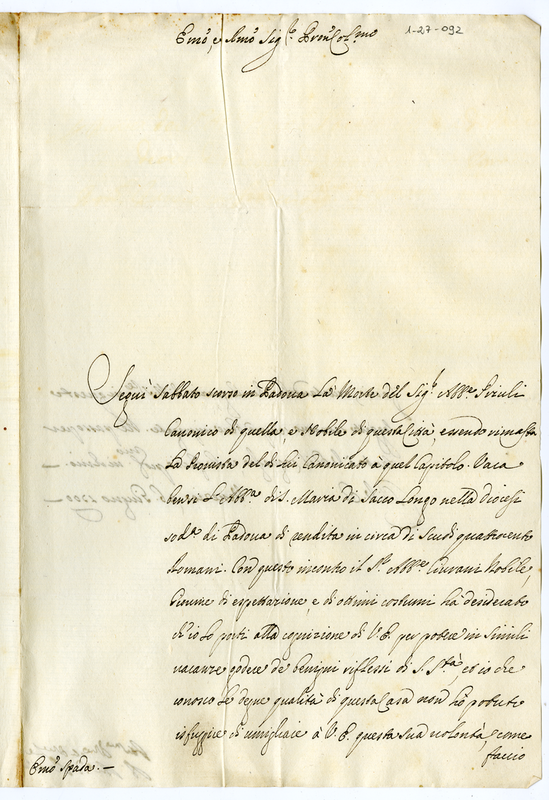 Em̃o, e Rm̃o Sig.r Pron Col.mo
1-27-092
Seguì Sabbato scorso in Padova la Morte del Sig.r Abb.e Priuli
Canonico di quella, e Nobile di questa Città, essendo rimasta
la provista del di lui Canonicato a quel Capitolo. Vaca
bensì l'Abb.a di S. Maria di Sacco Longo nella Diocesi
sod.a di Padova di rendita in circa di Scudi quattrocento
Romani. Con questo incontro il S.r Abb.e Giovani Nobile,
Giovine di espettazione, e di ottimi costumi hà desiderato
ch'io lo porti alla cognizione di V.E. per poter in simili
vacanze godere de benigni riflessi di S. S.tà, et io che
conosco le degne qualità di questa Casa non hò potuto
isfuggire di umigliare à V.E. questa sua volontà, come
faccio
Em̃o Spada.